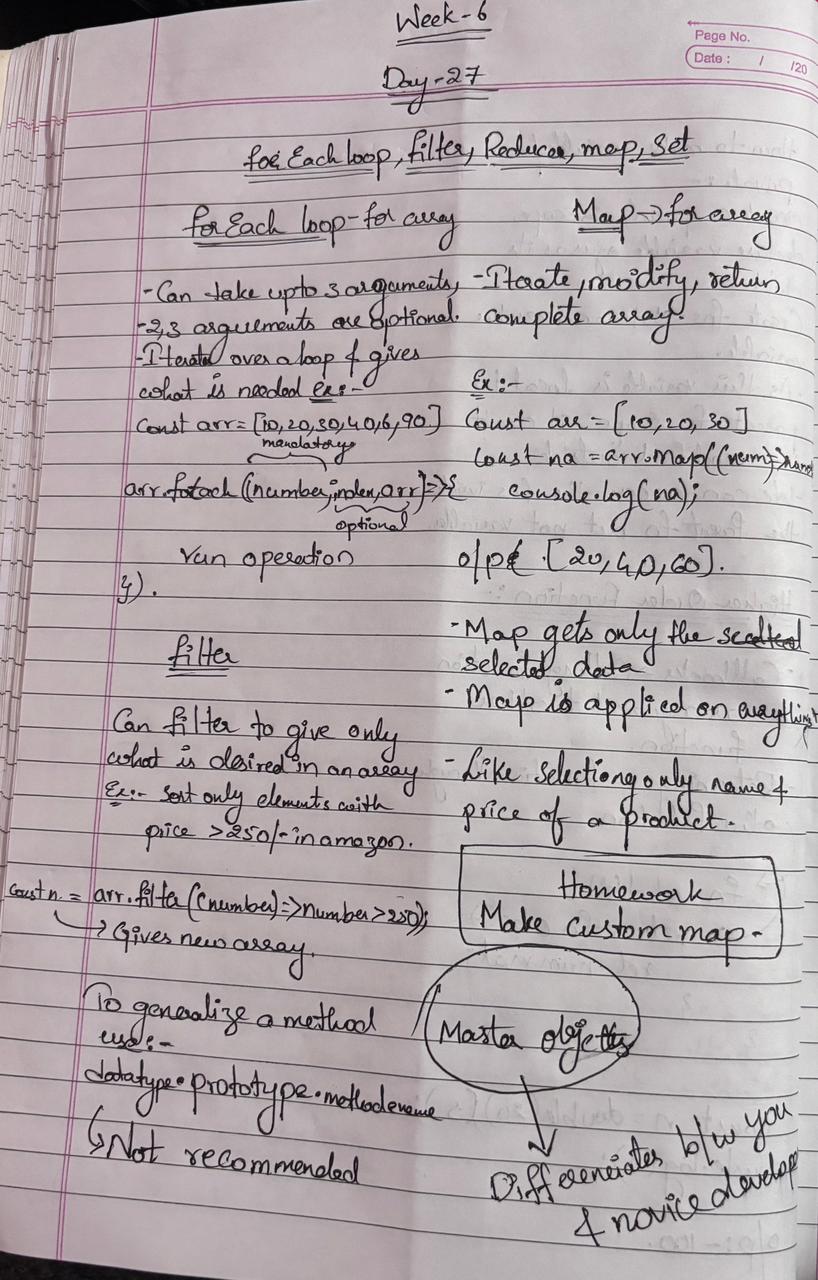 Week-6
Page No.
Date : / /20
Day-27
forEach loop, filter, Reducer, map, set
forEach loop - for array
- Can take upto 3 arguments,
- 2,3 arguements are optional.
- Iterate over a loop & gives
what is needed ex:-
Const arr = [10,20,30,40,6,90]
mandatory
arr.foEach((number,index,arr)=>{
optional
run operation
}).
filter
Can filter to give only
what is desired in an array
Ex:- Sort only elements with
price >250/- in amazon.
Const n. = arr.filter((number)=>number>250);
↳ Gives new array.
To generalize a method
use:-
datatype.prototype.methodename
↳ Not recommended
Map → for array
- Iterate, modify, return
complete array.
Ex:-
Const arr = [10,20,30]
Const na = arr.Map((num)=>
console.log(na);
o/p [20,40,60].
- Map gets only the
selected data
- Map is applied on everything
- Like selectiong only name &
price of a product.
Homework
Make custom map-
Master objects
Differenciates b/w you
& novice develop